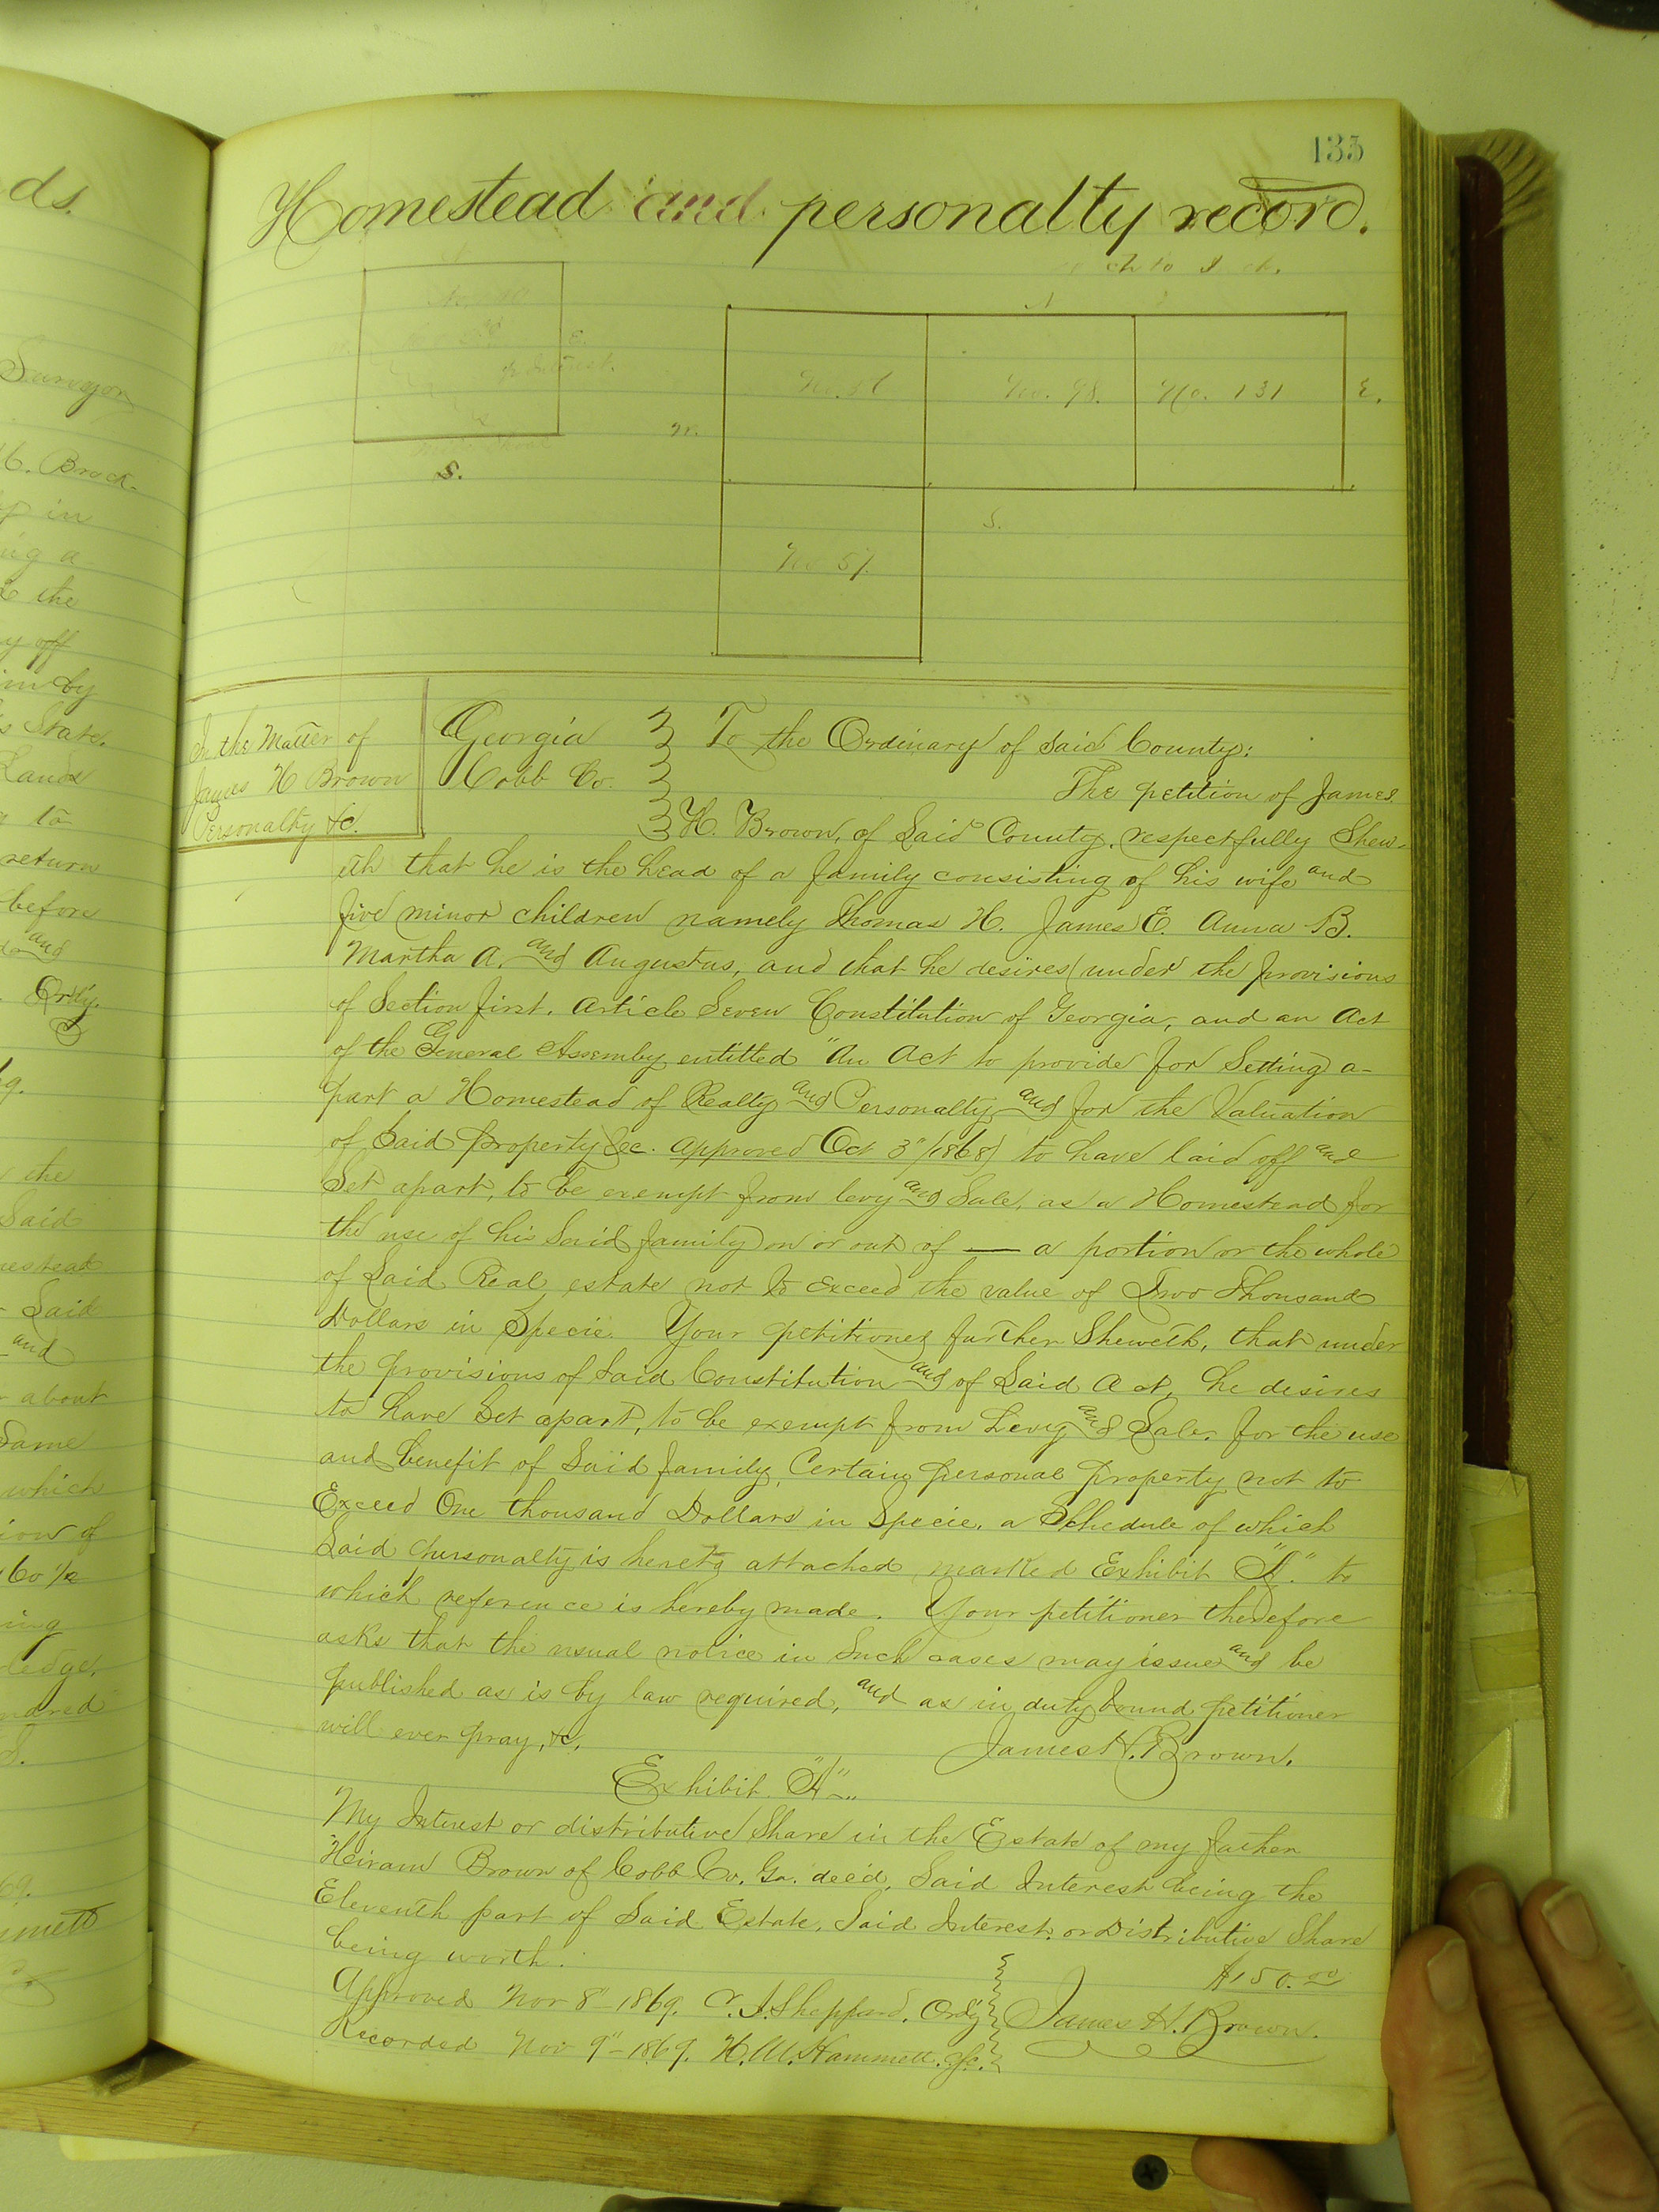 ds.
Surveyor
H. Brock
in
the
off
by
State.
Lands
to
return
before
and
Ordy.
the
Said
Said
and
about
Same
which
of
135
Homestead and personalty record.
ch to ch.
E.
Interest.
S.
N
No. 98.
No. 131
E.
S.
No 57.
In the Matter of
James H Brown
Personalty &c.
Georgia
Cobb Co.
To the Ordinary of Said County:
The petition of James
H. Brown, of Said County, respectfully Shew-
eth that he is the head of a family consisting of his wife and
five minor children namely Thomas H. James E. Anna B.
Martha A. and Augustus, and that he desires (under the provisions
of Section first. Article Seven Constitution of Georgia, and an Act
of the General Assemby entitled "An Act to provide for Setting a-
part a Homestead of Realty and Personalty and for the Valuation
of Said property &c. approved Oct 3" 1868) to have laid off and
Set apart, to be exempt from levy and Sale, as a Homestead for
the use of his Said family on or out of — a portion or the whole
of Said Real estate not to exceed the value of Two Thousand
Dollars in Specie. Your petitioner further Sheweth, that under
the provisions of Said Constitution and of Said Act, he desires
to have Set apart, to be exempt from Levy and Sale, for the use
and benefit of Said family, Certain personal property not to
Exceed One thousand Dollars in Specie, a Schedule of which
Said personalty is hereto attached marked Exhibit "A" to
which reference is hereby made. Your petitioner therefore
asks that the usual notice in Such cases may issue and be
published as is by law required, and as in duty bound petitioner
will ever pray, &c,
James H. Brown.
Exhibit "A"
My Interest or distributive Share in the Estate of my father
Heiram Brown of Cobb Co, Ga. dec'd, Said Interest being the
Eleventh part of Said Estate, Said Interest or Distributive Share
being worth.
$150.00
Approved Nov 8" 1869. Sheppard, Ordy
James H. Brown.
Recorded Nov 9" 1869. H. M. Hammett.